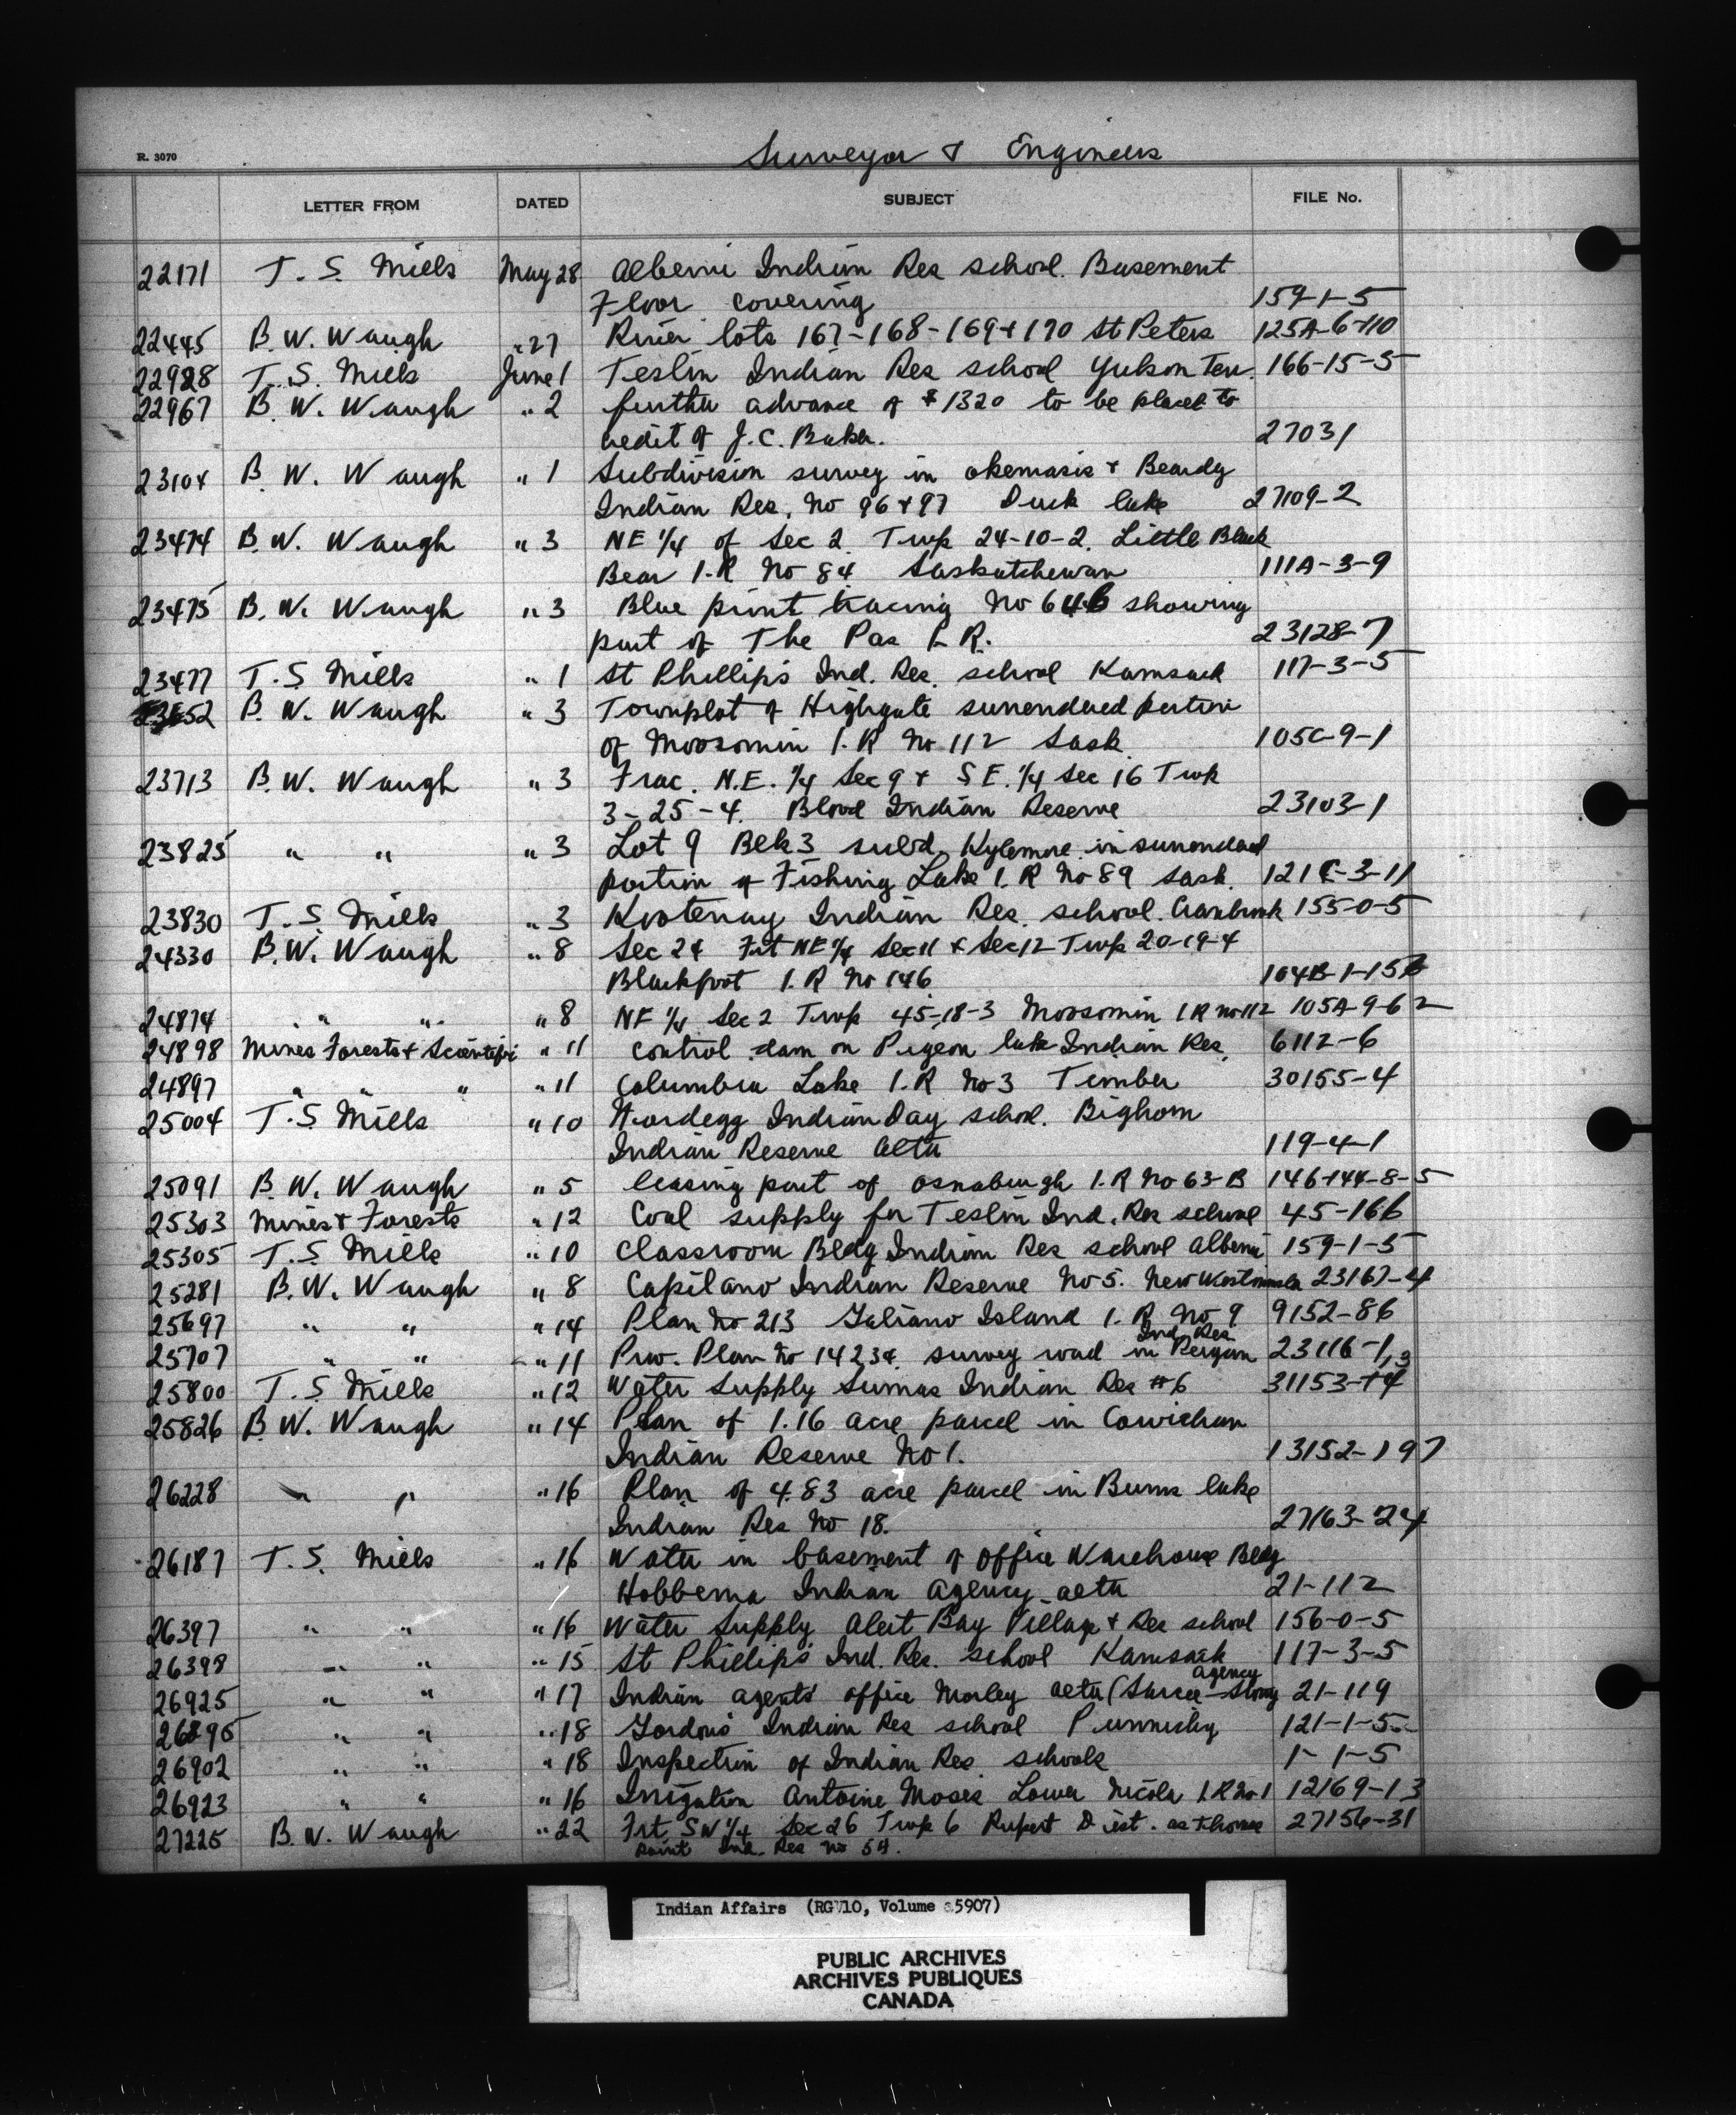 R. 3070
Surveyor & Engineers
LETTER FROM DATED SUBJECT FILE No.
22171 T. S. Mills May 28 Alberni Indian Res school. Basement
Floor covering 159-1-5
22445 B. W. Waugh " 27 River lots 167-168-169+170 St Peters 125A-6-110
22928 T. S. Mills June 1 Teslin Indian Res school Yukon Terr. 166-15-5
22967 B. W. Waugh " 2 further advance of $1320 to be placed to
credit of J. C. Baker. 27031
23104 B. W. Waugh " 1 Subdivision survey in Okemasis & Beardy
Indian Res. No 96+97 Duck lake 27109-2
23474 B. W. Waugh " 3 NE 1/4 of Sec 2. Twp 24-10-2. Little Black
Bear I.R No 84 Saskatchewan 111A-3-9
23475 B. W. Waugh " 3 Blue print tracing No 646 showing
part of The Pas I. R. 23128-7
23477 T. S Mills " 1 St Phillips Ind. Res. school Kamsack 117-3-5
52 B. W. Waugh " 3 Townplot of Highgate surrendered portion
of Moosomin I. R No 112 Sask. 105C-9-1
23713 B. W. Waugh " 3 Frac. N.E. 1/4 Sec 9 & S E. 1/4 Sec 16 Twp
3-25-4. Blood Indian Reserve 23103-1
23825 " " " 3 Lot 9 Blk 3 subd. Kylemore in surrendered
portion of Fishing Lake I. R No 89 Sask. 121C-3-11
23830 T. S. Mills " 3 Kootenay Indian Res. school. Cranbrook 155-0-5
24330 B. W. Waugh " 8 Sec 24 Frt NE 1/4 Sec 11 & Sec 12 Twp 20-19-4
Blackfoot I. R No 146 104B-1-15
24874 " " " 8 NE 1/4 Sec 2 Twp 45-18-3 Moosomin I R No 112 105A-9-62
24898 Mines Forests & Scientific " 11 control dam on Pigeon lake Indian Res. 6112-6
24897 " " " " 11 Columbia Lake I. R No 3 Timber 30155-4
25004 T. S Mills " 10 Nordegg Indian Day school. Bighorn
Indian Reserve Alta 119-4-1
25091 B. W. Waugh " 5 leasing part of Osnaburgh I. R No 63-B 146+144-8-5
25303 Mines & Forests " 12 Coal supply for Teslin Ind. Res school 45-166
25305 T. S Mills " 10 Classroom Bldg Indian Res school Alberni 159-1-5
25281 B. W. Waugh " 8 Capilano Indian Reserve No 5. New Westminster 23167-4
25697 " " " 14 Plan No 213 Galiano Island I. R. No 9 9152-86
Ind Res
25707 " " " 11 Prov. Plan No 14234. survey road in Peigan 23116-1,3
25800 T. S Mills " 12 Water Supply Sumas Indian Res #6 31153-14
25826 B. W. Waugh " 14 Plan of 1.16 acre parcel in Cowichan
Indian Reserve No 1. 13152-197
26228 " " " 16 Plan of 4.83 acre parcel in Burns lake
Indian Res No 18. 27163-24
26187 T. S. Mills " 16 Water in basement of office Warehouse Bldg
Hobbema Indian Agency Alta 21-112
26397 " " " 16 Water Supply Alert Bay Village & Res school 156-0-5
26398 " " " 15 St Phillips Ind. Res. school Kamsack 117-3-5
Agency
26925 " " " 17 Indian agents office Morley Alta (Sarcee-Stony 21-119
26895 " " " 18 Gordons Indian Res school Punnichy 121-1-5
26902 " " " 18 Inspection of Indian Res. schools 1-1-5
26923 " " " 16 Irrigation Antoine Moses Lower Nicola I.R No 1 12169-13
27225 B. W. Waugh " 22 Frt. SW 1/4 Sec 26 Twp 6 Rupert Dist.  27156-31
Point Ind. Res No 54.
Indian Affairs (RG 10, Volume 5907)
PUBLIC ARCHIVES
ARCHIVES PUBLIQUES
CANADA